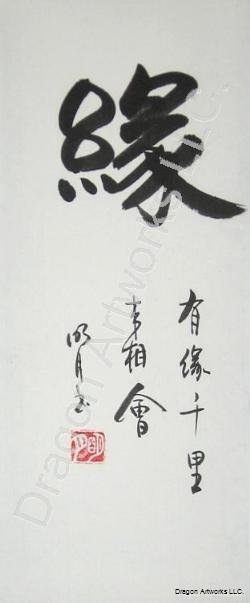 緣
有緣千里
來相會
明月書
Dragon Artworks LLC.
Dragon Artworks LLC.